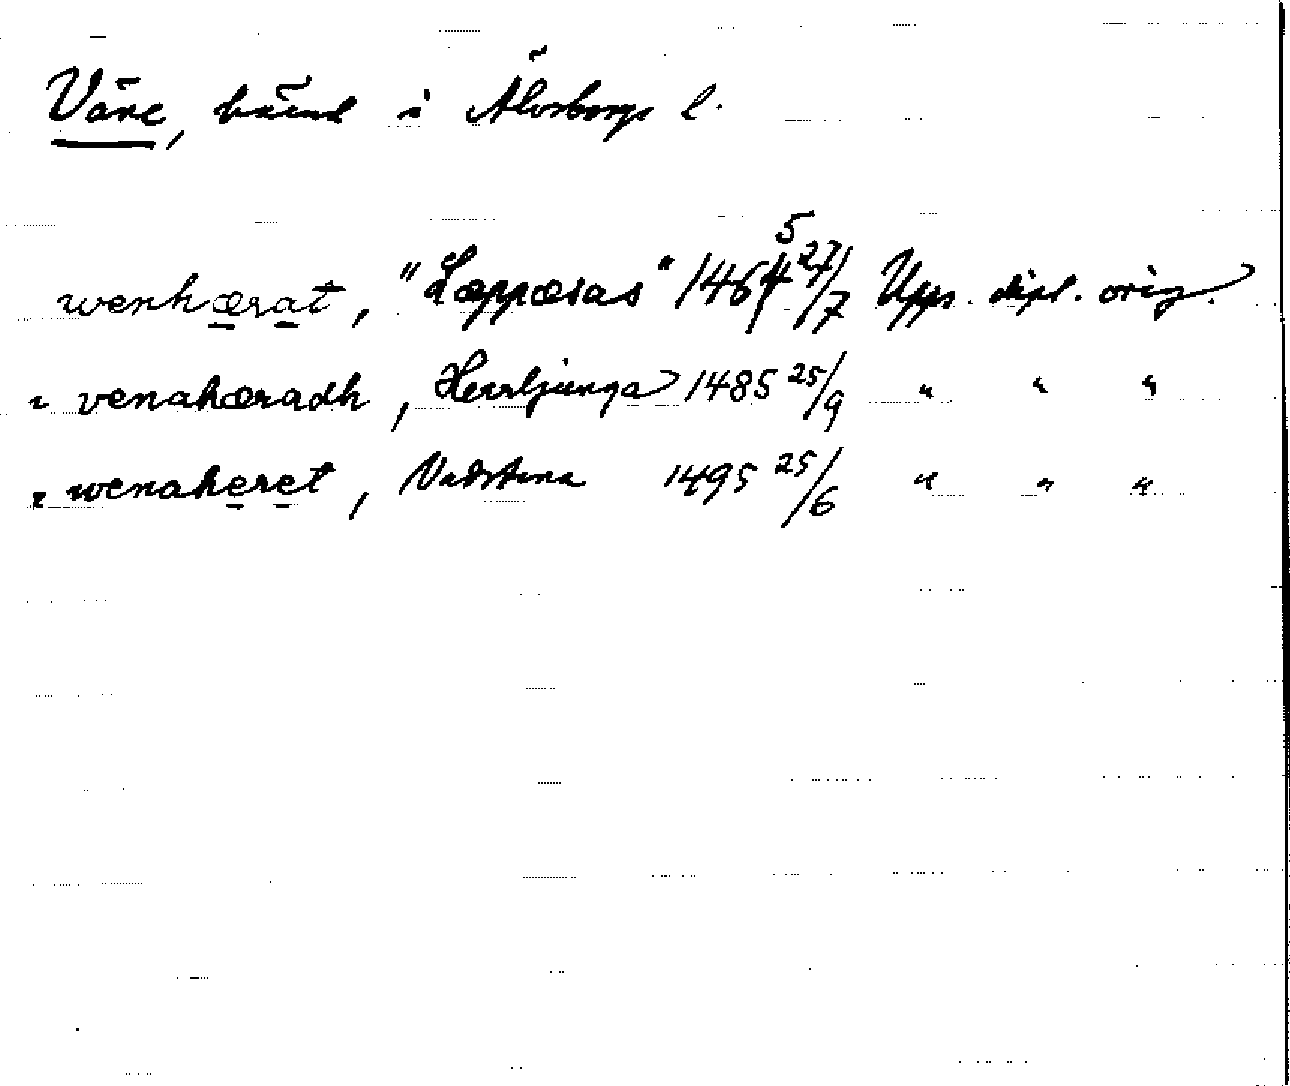 Väne, härad i Älvsborgs l.
wenhærat, "Læppæsas" 1465 27/7 Upps. dipl. orig.
i venahæradh, Herrljunga 1485 25/9 " " "
i wenaheret, Vadstena 1495 25/6 " " "